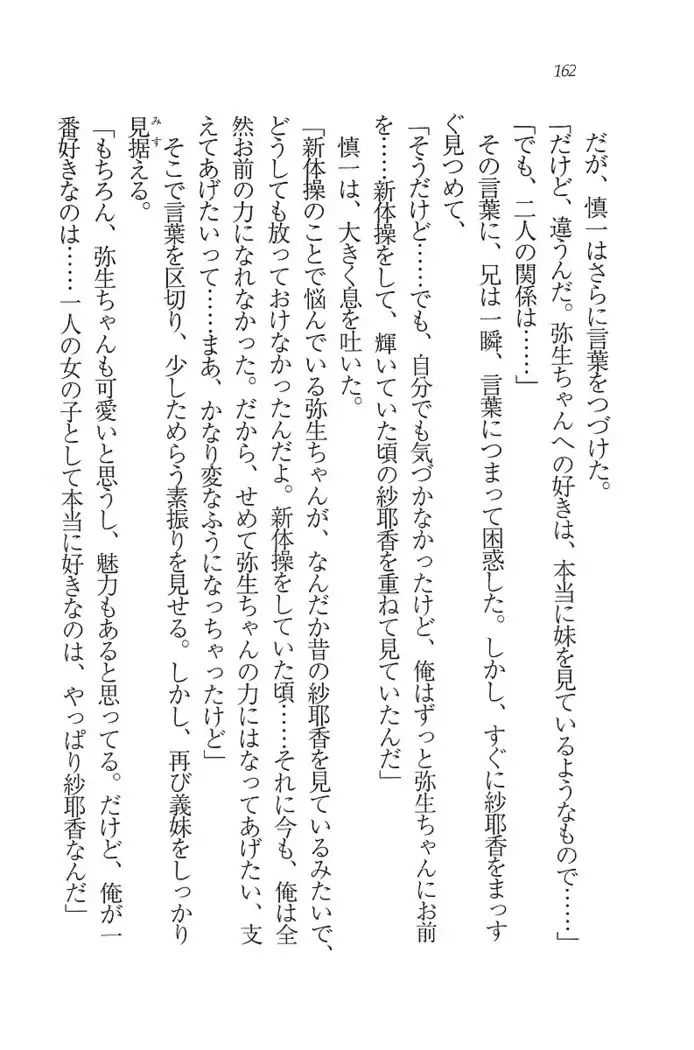 162
だが、慎一はさらに言葉をつづけた。
「だけど、違うんだ。弥生ちゃんへの好きは、本当に妹を見ているようなもので……」
「でも、二人の関係は……」
その言葉に、兄は一瞬、言葉につまって困惑した。しかし、すぐに紗耶香をまっす
ぐ見つめて、
「そうだけど……でも、自分でも気づかなかったけど、俺はずっと弥生ちゃんにお前
を……新体操をして、輝いていた頃の紗耶香を重ねて見ていたんだ」
慎一は、大きく息を吐いた。
「新体操のことで悩んでいる弥生ちゃんが、なんだか昔の紗耶香を見ているみたいで、
どうしても放っておけなかったんだよ。新体操をしていた頃……それに今も、俺は全
然お前の力になれなかった。だから、せめて弥生ちゃんの力にはなってあげたい、支
えてあげたいって……まあ、かなり変なふうになっちゃったけど」
そこで言葉を区切り、少しためらう素振りを見せる。しかし、再び義妹をしっかり
見据える。
みす
「もちろん、弥生ちゃんも可愛いと思うし、魅力もあると思ってる。だけど、俺が一
番好きなのは……一人の女の子として本当に好きなのは、やっぱり紗耶香なんだ」